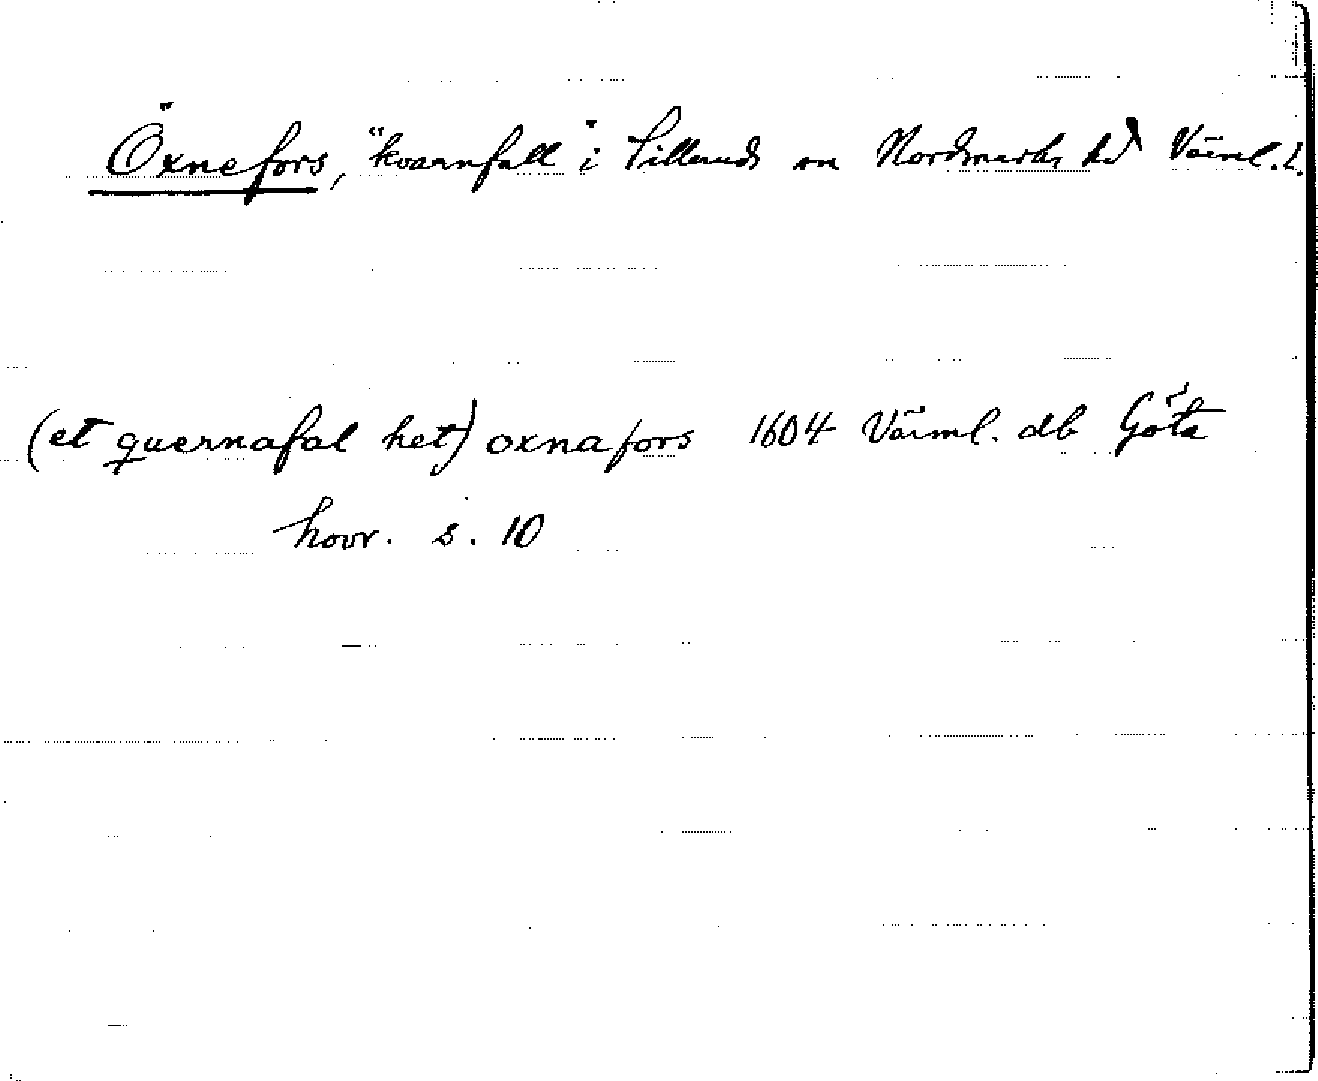 Öxnefors, "kvarnfall" i Silleruds sn Nordmarks hd Värml. l.
(et quernafal het) oxnafors 1604 Värml. db Göta
hovr. s. 10